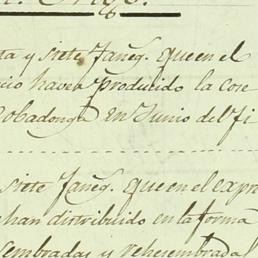 ta y siete faneg. que en el
cio haver producido la cose
Cobadonga en Junio del
siete faneg. que en el expre
han distribuido en la forma
sembradas y rehesembradas